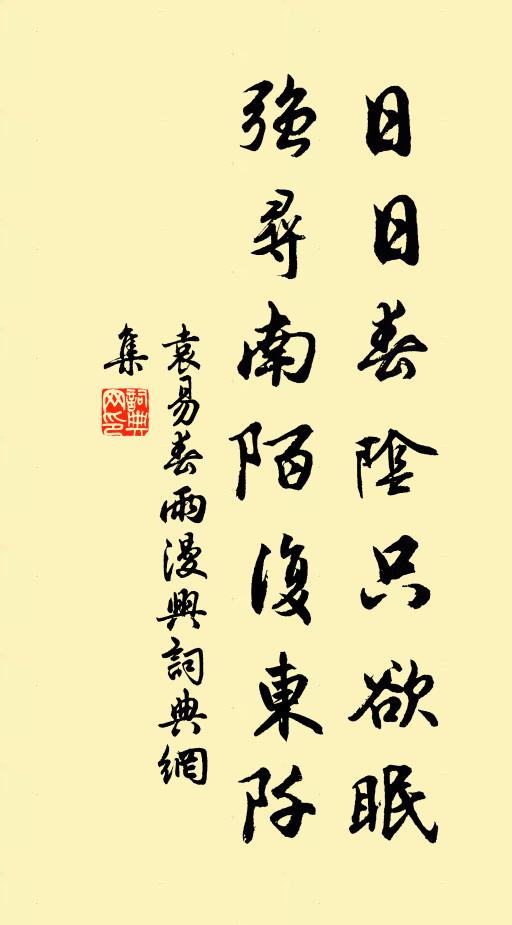 日日春陰只欲眠
強尋南陌復東阡
袁易春雨漫興詞典網
集
詞典
网印